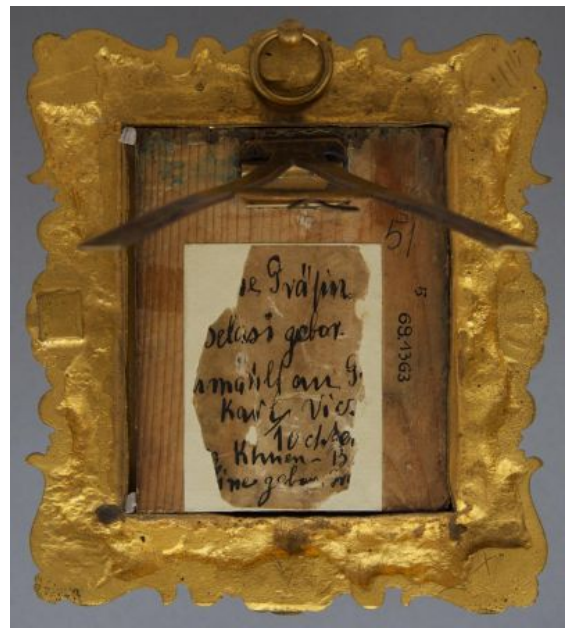 51
5
69.1363
se Gräfin
selasi gebor.
rmählt an G.
Karl Vic.
Tochter
Khuen-B
ine gebor.